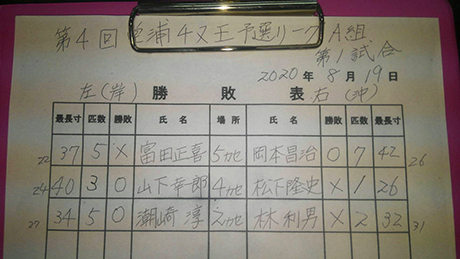 第4回 浦チヌ王予選リーグA組
第1試合
2020年8月19日
左(岸) 勝敗表 右(沖)
最長寸 匹数 勝敗 氏名 場所 氏名 勝敗 匹数 最長寸
22 37 5 X 富田正喜 5カセ 岡本昌治 O 7 42 26
24 40 3 O 山下幸郎 4カセ 松下隆史 X 1 26
27 34 5 O 潮崎淳 2カセ 林利男 X 2 32 31